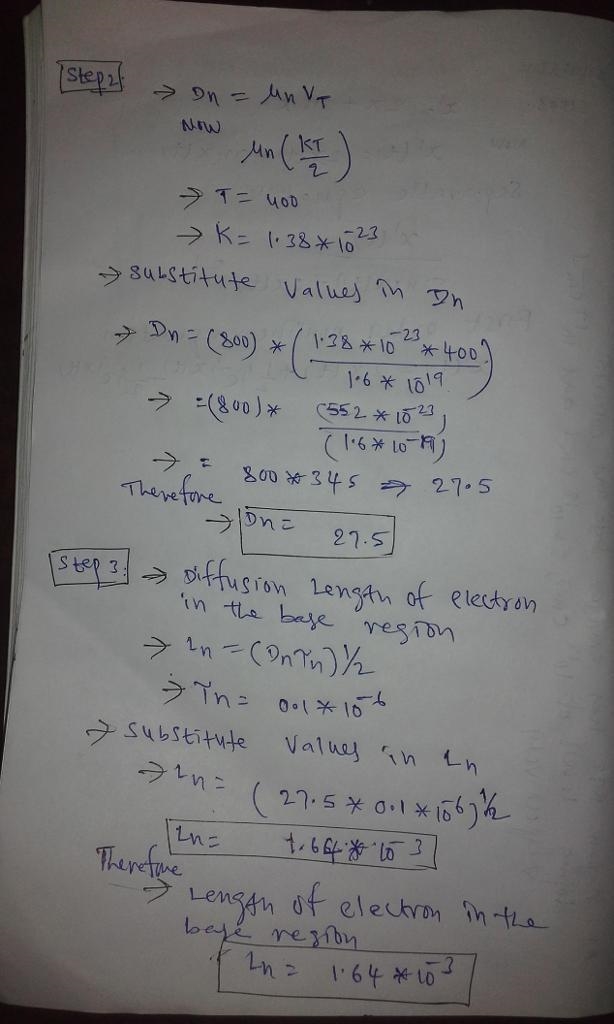 Step 2:
→ Dn = μn VT
Now
μn (KT/2)
→ T = 400
→ K = 1.38 * 10^-23
→ Substitute Values in Dn
→ Dn = (800) * (1.38 * 10^-23 * 400 / 1.6 * 10^19)
→ = (800) * (552 * 10^-23) / (1.6 * 10^-19)
→ = 800 * 345 ⇒ 27.5
Therefore
→ Dn = 27.5
Step 3: ⇒ Diffusion Length of electron
in the base region
→ Ln = (Dn Tn)^1/2
→ Tn = 0.1 * 10^-6
→ Substitute Values in Ln
→ Ln = (27.5 * 0.1 * 10^-6)^1/2
Ln = 1.64 * 10^-3
Therefore
→ Length of electron in the
base region
Ln = 1.64 * 10^-3